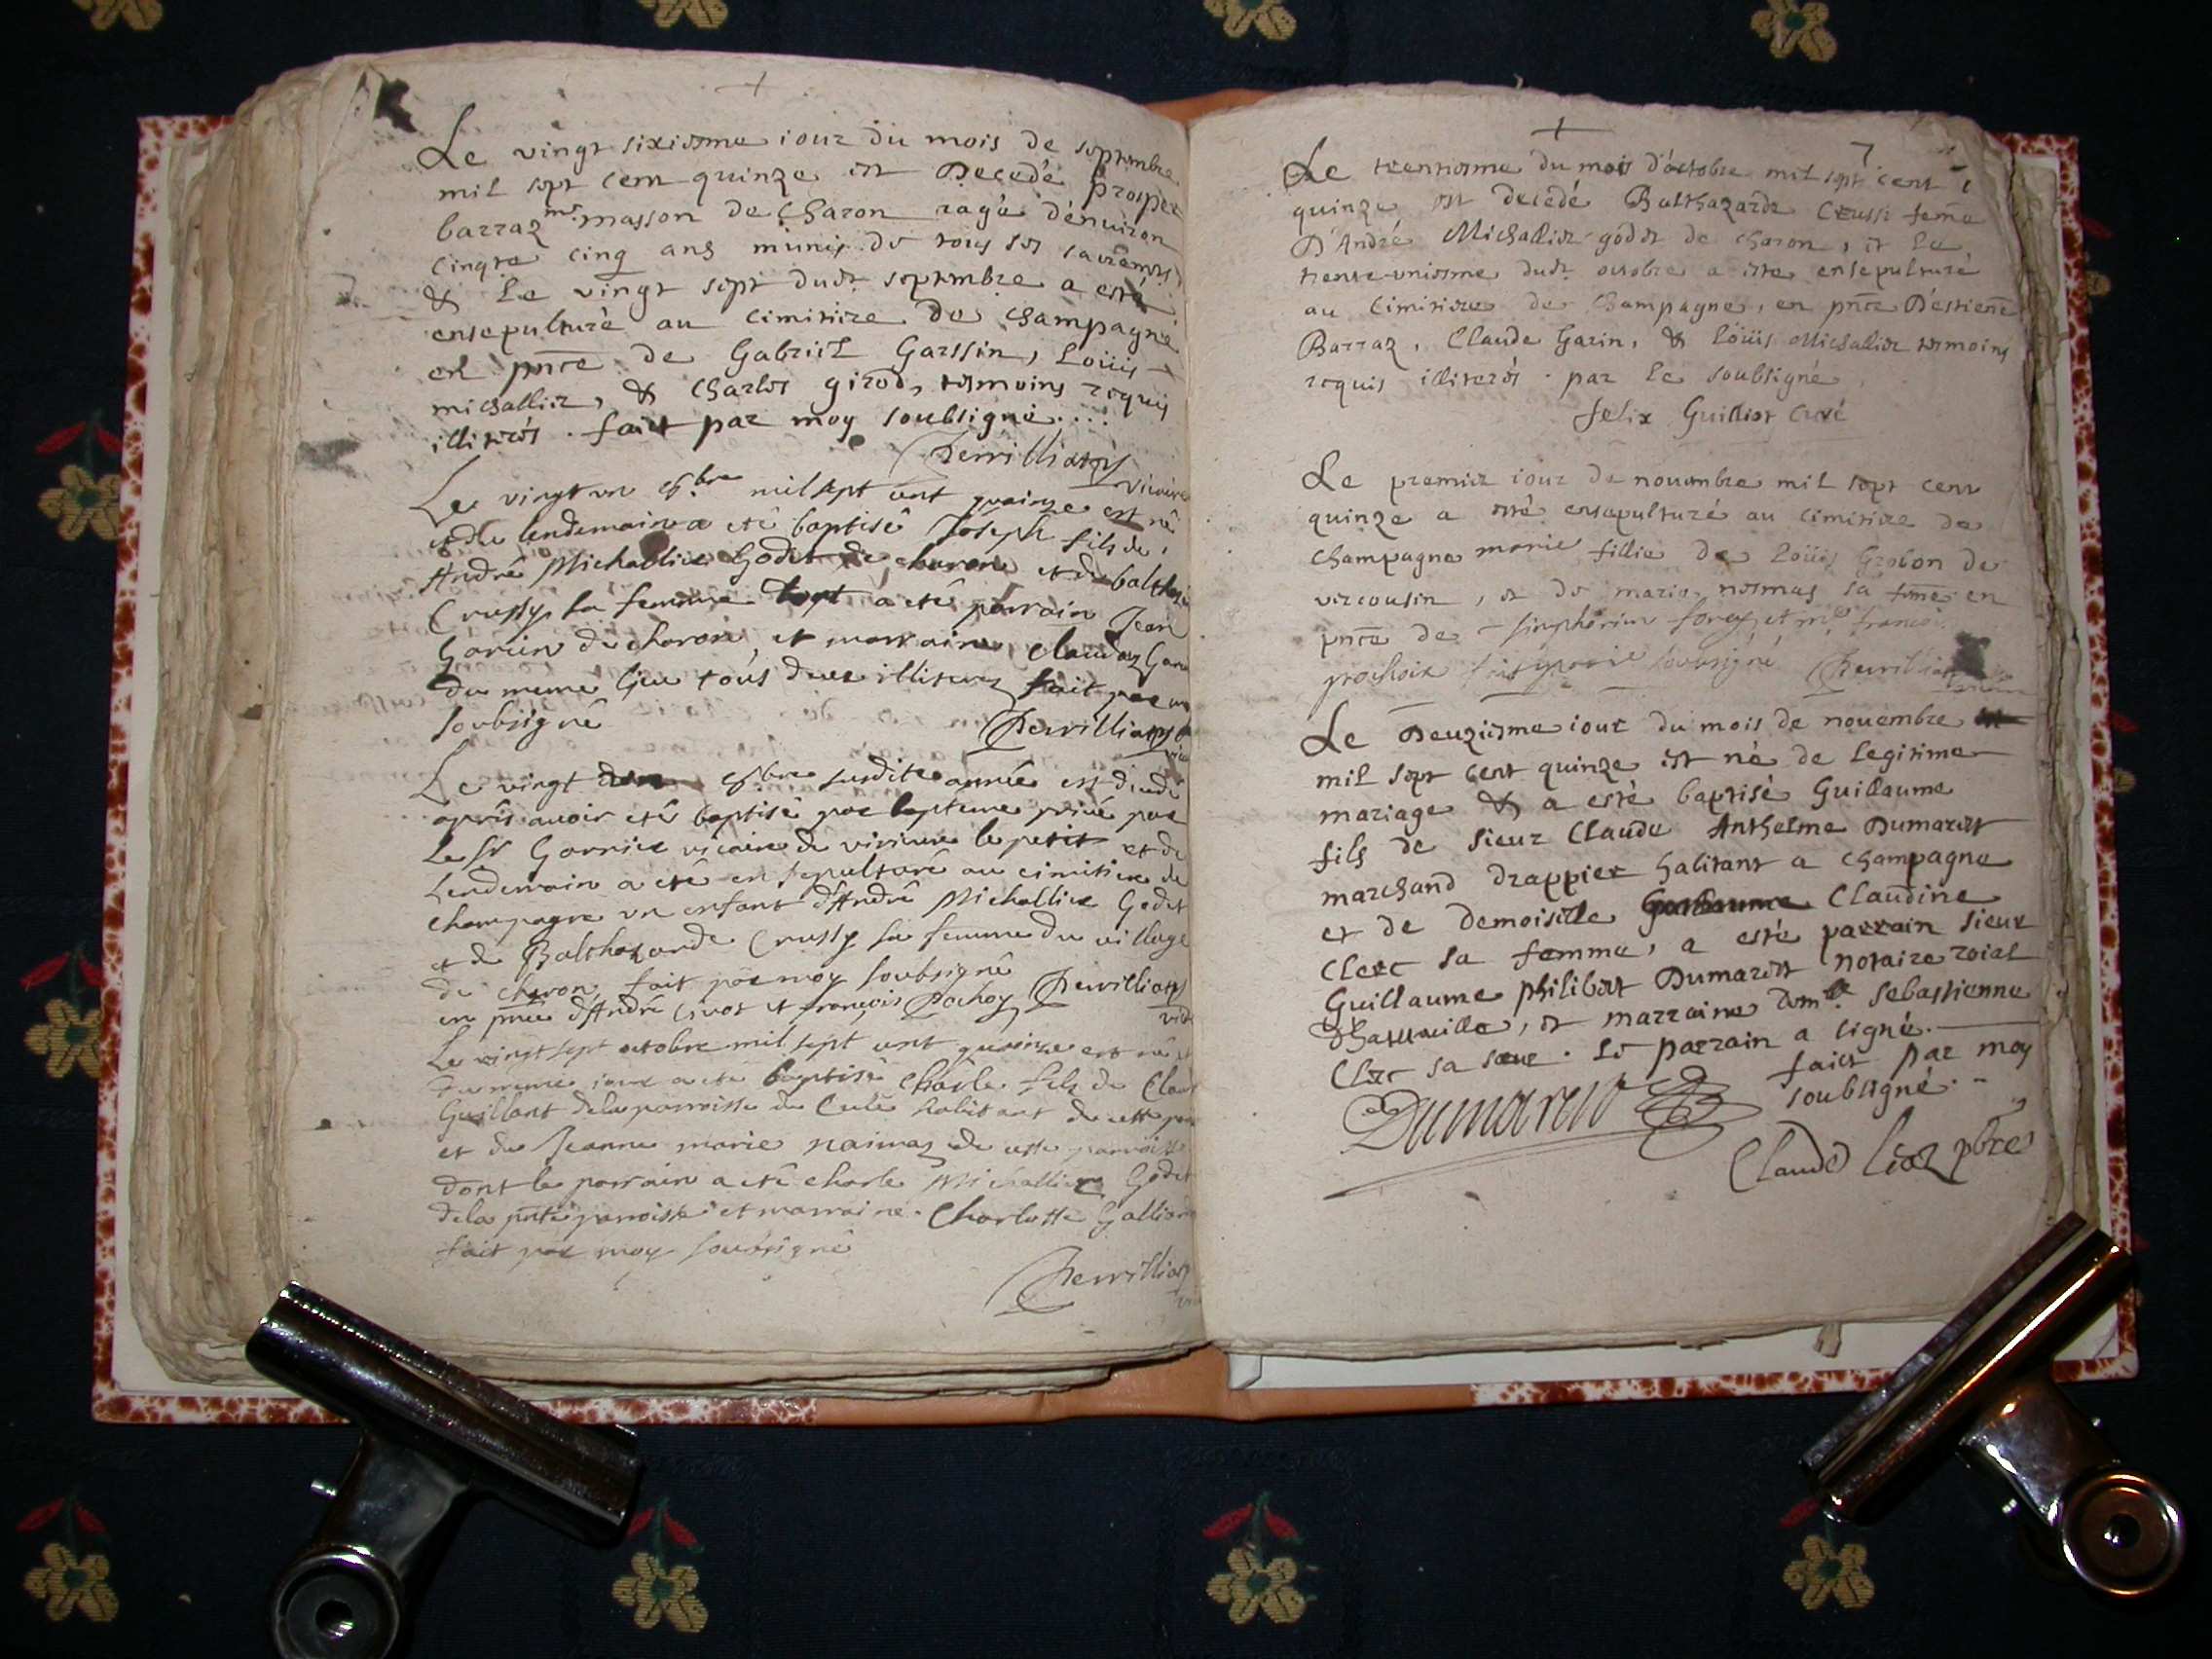 Le vingt sixiesme iour du mois de septembre
mil sept cent quinze est Decedé prosper
barraz me masson de charon aagé d'enuiron
cinqte cinq ans munis de tous ses sacremts
& Le vingt sept dudt septembre a esté
ensepulturé au cimitiere de champagne
en pnce de Gabriel Garssin, Loüis
michallier, & charles girod, tesmoins requis
illiterés. faict par moy soubsigné
Perrilliat
vicaire
Le vingt un 8bre mil sept cent quinze est né
et le lendemain a eté baptisé Joseph fils de
André Michallier Godet de charon et de balthaz
Crussy sa femme dont a eté parrain Jean
Garin de charon, et marraine Claudaz Garin
du meme lieu tous deux illiterez fait par m
soubsigné
Perrilliat
Le vingt 8bre susdite année est decedé
aprés auoir eté baptisé par bapteme privé par
Le Sr Garnier vicaire de virieux le petit et le
Lendemain a eté ensepulturé au cimitiere de
champagne un enfant d'André Michallier Godet
et de Balthazarde Crussy sa femme du village
de charon fait par moy soubsigné
en pnce d'André et françois Pochoy Perrilliat
Le vingt sept octobre mil sept cent quinze est né et
Le meme iour a eté baptisé Charle fils de Claud
Guillant de la parroisse de Culé habitant de cette par
et de Jeanne marie naimaz de cette parroisse
dont le parrain a eté charle Michallier Godet
de la pnte parroisse et marraine Charlotte Galliard
fait par moy soubsigné
Perrilliat
7
Le trentiesme du mois d'octobre mil sept cent
quinze est decedé Balthazarde Crussi feme
D'André Michallier godet de charon, et Le
trente-uniesme dudt octobre a esté ensepulturé
au Cimitiere de Champagne, en pnce D'estiene
Barraz, Claude Garin, & Loüis Michallier tesmoins
requis illiterés. par Le soubsigné
felix Guilliot Curé
Le premier iour de nouembre mil sept cent
quinze a esté ensepulturé au cimitiere de
champagne marie fillie de Loüis Grobon de
vercousin, et de marie nesmes sa feme en
pnce de sinphorien forey et françois
pochoix fait soubsigné Perrilliat
Le Deuziesme iour du mois de nouembre
mil sept cent quinze est né de legitime
mariage & a esté baptisé Guillaume
fils de sieur Claude Anthelme Dumarest
marchand drappier habitant a champagne
et de demoiselle Claudine
Clerc sa femme, a esté parrain sieur
Guillaume philibert Dumarest notaire roial
d'hauteuille, et marraine damlle Sebastienne
Clerc sa sœur. Le parrain a signé.
faict par moy
soubsigné.
Dumarest
Claude pbre